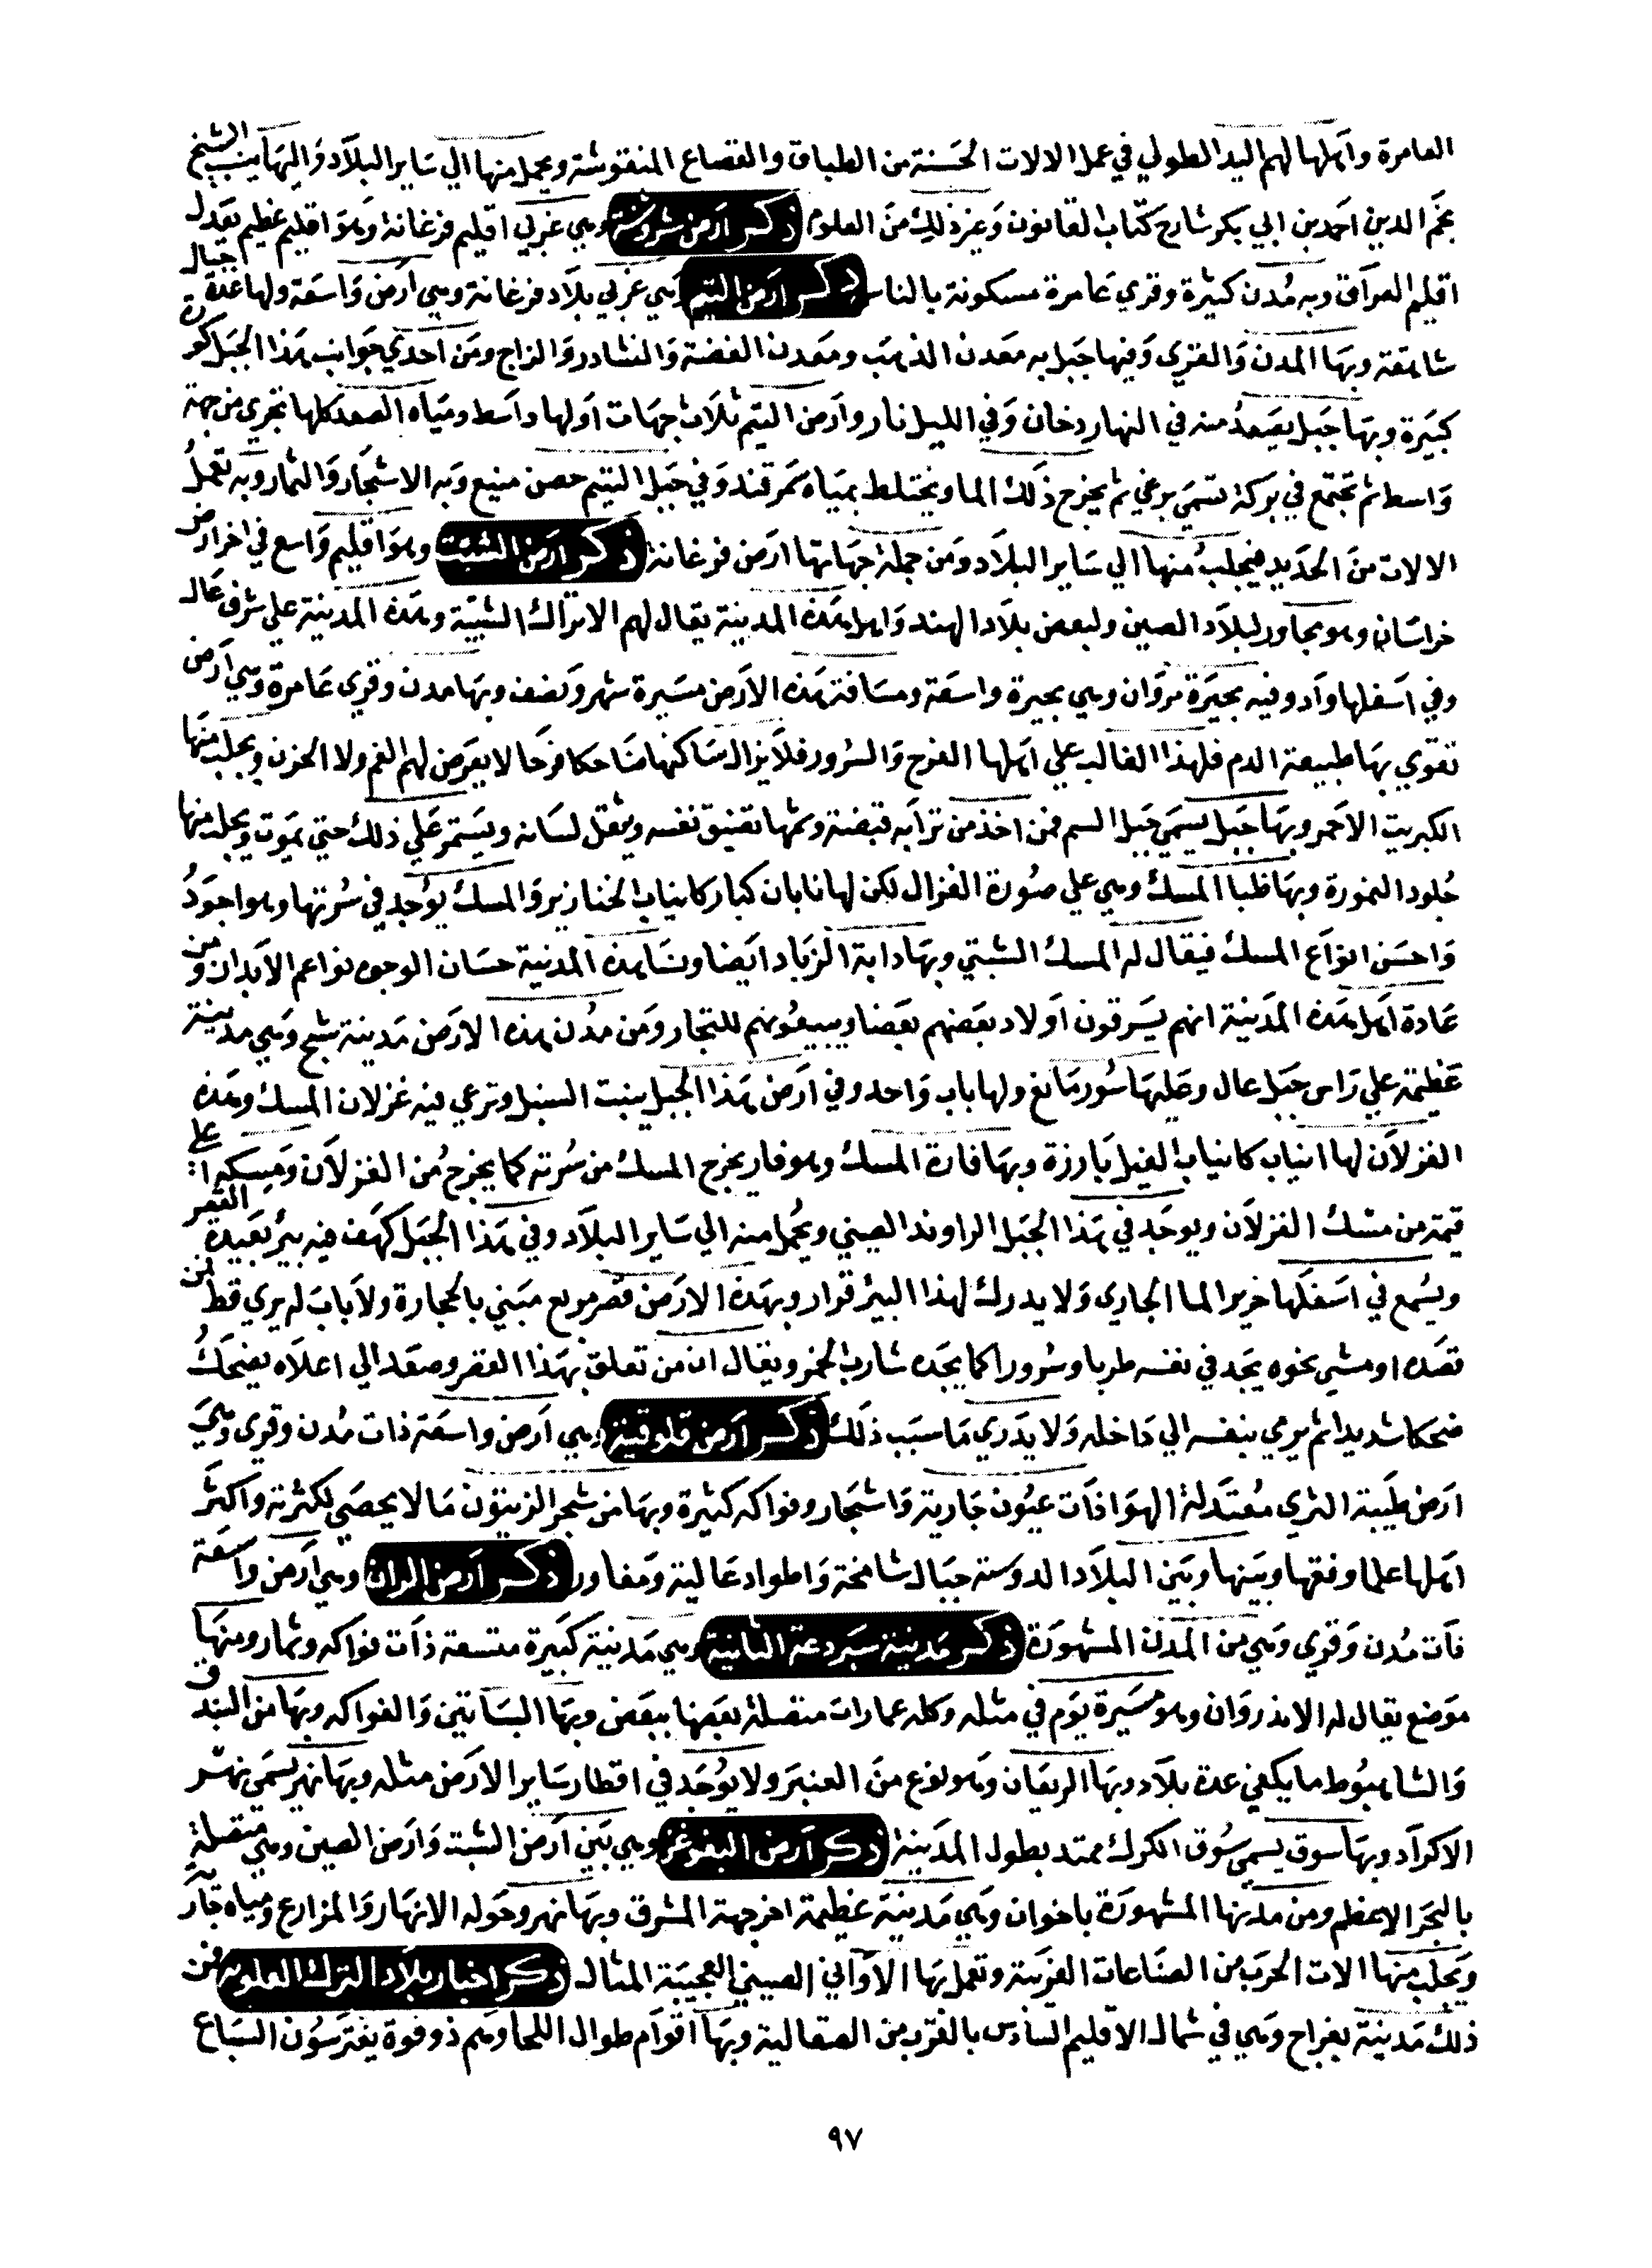 العامرة واهلها لهم اليد الطولي في عمل الالات الحسنة من الطباق والقصاع المنقوشة ويحمل منها الي ساير البلاد واليها ينسب الشيخ
نجم الدين احمد بن ابي بكر شارح كتاب القانون وغير ذلك من العلوم ذكر ارض شروسنة وهي غربي اقليم فرغانة وهو اقليم عظيم يعدل
اقليم العراق وبه مدن كثيرة وقري عامرة مسكونة بالناس ذكر ارض اليتم وهي غربي بلاد فرغانة وهي ارض واسعة ولها عدة جبال
شاهقة وبها المدن والقري وفيها جبل به معدن الذهب ومعدن الفضة والنشادر والزاج ومن احدي جوانب هذا الجبل كور
كبيرة وبها جبل يصعد منه في النهار دخان وفي الليل نار وارض اليتم ثلاث جهات اولها واسط ومياه الصغد كلها تجري من جهة
واسط ثم تجتمع في بركة تسمي برغي ثم يخرج ذلك الما ويختلط بمياه سمرقند وفي جبل اليتم حصن منيع وبه الاشجار والثمار وبه تعمل
الالات من الحديد فيجلب منها الي ساير البلاد ومن جملة جهاتها ارض فرغانة ذكر ارض التبت وهو اقليم واسع في اخر ارض
خراسان وهو مجاور لبلاد الصين ولبعض بلاد الهند واهل هذه المدينة يقال لهم الاتراك التبتية وهذه المدينة علي شرف عال
وفي اسفلها واد وفيه بحيرة بروان وهي بحيرة واسعة ومسافة هذه الارض مسيرة شهر ونصف وبها مدن وقري عامرة وهي ارض
تقوي بها طبيعة الدم فلهذا الغالب علي اهلها الفرح والسرور فلا يزال ساكنها ضاحكا فرحا لا يعرض لهم الغم ولا الحزن ويجلب منها
الكبريت الاحمر وبها جبل يسمي جبل السم فمن اخذ من ترابه قبضة وشمها تضيق نفسه ويثقل لسانه ويستمر علي ذلك حتي يموت ويجلب منها
جلود النمورة وبها ظبا المسك وهي علي صورة الغزال لكن لها نابان كبار كانياب الخنازير والمسك يوجد في سرتها وهو اجود
واحسن انواع المسك فيقال له المسك التبتي وبها دابة الزباد ايضا ونسا هذه المدينة حسان الوجوه نواعم الابدان ومن
عادة اهل هذه المدينة انهم يسرقون اولاد بعضهم بعضا ويبيعونهم للتجار ومن مدن هذه الارض مدينة تبنج وهي مدينة
عظيمة علي راس جبل عال وعليها سور مانع ولها باب واحد وفي ارض هذا الجبل ينبت السنبل وترعي فيه غزلان المسك وهذه
الغزلان لها انياب كانياب الفيل بارزة وبها فارة المسك وهو فار يخرج المسك من سرته كما يخرج من الغزلان ومسكه اعلا
قيمة من مسك الغزلان ويوجد في هذا الجبل الراوند الصيني ويحمل منه الي ساير البلاد وفي هذا الجبل كهف فيه بير بعيدة القعر
ويسمع في اسفلها خرير الما الجاري ولا يدرك لهذا البير قرار وبهذه الارض قصر مربع مبني بالحجارة ولا باب له يري قط فمن
قصده او مشي نحوه يجد في نفسه طربا وسرورا كما يجده شارب الخمر ويقال ان من تعلق بهذا القصر وصعد الي اعلاه يضحك
ضحكا شديدا ثم يرمي بنفسه الي داخله ولا يدري ما سبب ذلك ذكر ارض قلوقية وهي ارض واسعة ذات مدن وقري وهي
ارض طيبة الثري معتدلة الهوا ذات عيون جارية واشجار وفواكه كثيرة وبها من شجر الزيتون ما لا يحصي لكثرته واكثر
اهلها علما وفقها وبينها وبين البلاد الدوسية جبال شامخة واطواد عالية ومغاور ذكر ارض الران وهي ارض واسعة
ذات مدن وقري وهي من المدن المشهورة ذكر مدينة سبردعة الثانية وهي مدينة كبيرة متسعة ذات فواكه وثمار ومنها
موضع يقال له الاندروان وهو مسيرة يوم في مثله وكله عمارات متصلة بعضها ببعض وبها البساتين والفواكه وبها من البندق
والشاهبوط ما يكفي عدة بلاد وبها الريقان وهو نوع من العنبر ولا يوجد في اقطار ساير الارض مثله وبها نهر يسمي نهر
الاكراد وبها سوق يسمي سوق الكرك ممتد بطول المدينة ذكر ارض البغرغز وهي بين ارض التبت وارض الصين وهي متصلة
بالبحر الاعظم ومن مدينها المشهورة باخوان وهي مدينة عظيمة اخر جهة المشرق وبها نهر وحوله الانهار والمزارع ومياه جارية
ويجلب منها الات الحرب من الصناعات الغريبة وتعمل بها الاواني الصيني العجيبة المثال ذكر اخبار بلاد الترك العلوية فمن
ذلك مدينة بغراج وهي في شمال الاقليم السادس بالقرب من الصقالبة وبها اقوام طوال اللحا وهم ذو قوة يفترسون السباع
٩٧